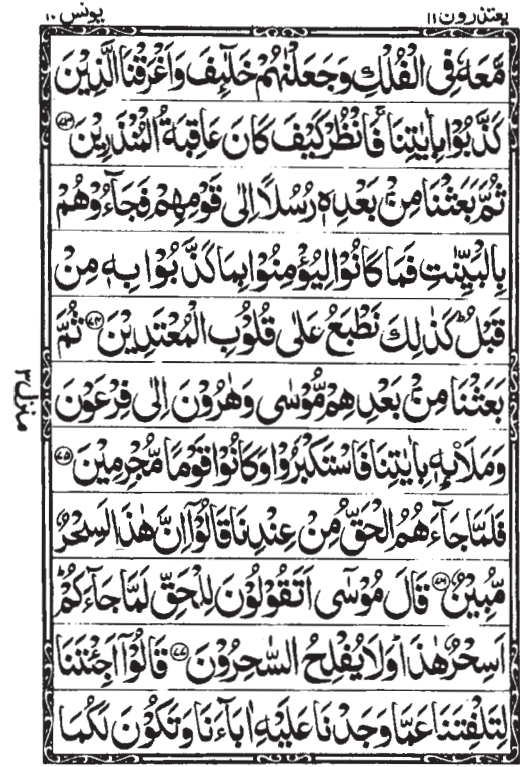 یعتذرون ۱۱
یونس ۱۰
مَّعَهٗ فِی الْفُلْكِ وَجَعَلْنٰهُمْ خَلٰٓئِفَ وَاَغْرَقْنَا الَّذِیْنَ
كَذَّبُوْا بِاٰیٰتِنَاۚ فَانْظُرْ كَیْفَ كَانَ عَاقِبَةُ الْمُنْذَرِیْنَ ﴿۷۳﴾
ثُمَّ بَعَثْنَا مِنْۢ بَعْدِهٖ رُسُلًا اِلٰی قَوْمِهِمْ فَجَآءُوْهُمْ
بِالْبَیِّنٰتِ فَمَا كَانُوْا لِیُؤْمِنُوْا بِمَا كَذَّبُوْا بِهٖ مِنْ
قَبْلُؕ كَذٰلِكَ نَطْبَعُ عَلٰی قُلُوْبِ الْمُعْتَدِیْنَ ﴿۷۴﴾ ثُمَّ
بَعَثْنَا مِنْۢ بَعْدِهِمْ مُّوْسٰی وَهٰرُوْنَ اِلٰی فِرْعَوْنَ
وَمَلَا۟ئِهٖ بِاٰیٰتِنَا فَاسْتَكْبَرُوْا وَكَانُوْا قَوْمًا مُّجْرِمِیْنَ ﴿۷۵﴾
فَلَمَّا جَآءَهُمُ الْحَقُّ مِنْ عِنْدِنَا قَالُوْۤا اِنَّ هٰذَا لَسِحْرٌ
مُّبِیْنٌ ﴿۷۶﴾ قَالَ مُوْسٰۤی اَتَقُوْلُوْنَ لِلْحَقِّ لَمَّا جَآءَكُمْؕ
اَسِحْرٌ هٰذَاؕ وَلَا یُفْلِحُ السّٰحِرُوْنَ ﴿۷۷﴾ قَالُوْۤا اَجِئْتَنَا
لِتَلْفِتَنَا عَمَّا وَجَدْنَا عَلَیْهِ اٰبَآءَنَا وَتَكُوْنَ لَكُمَا
منزل ۳